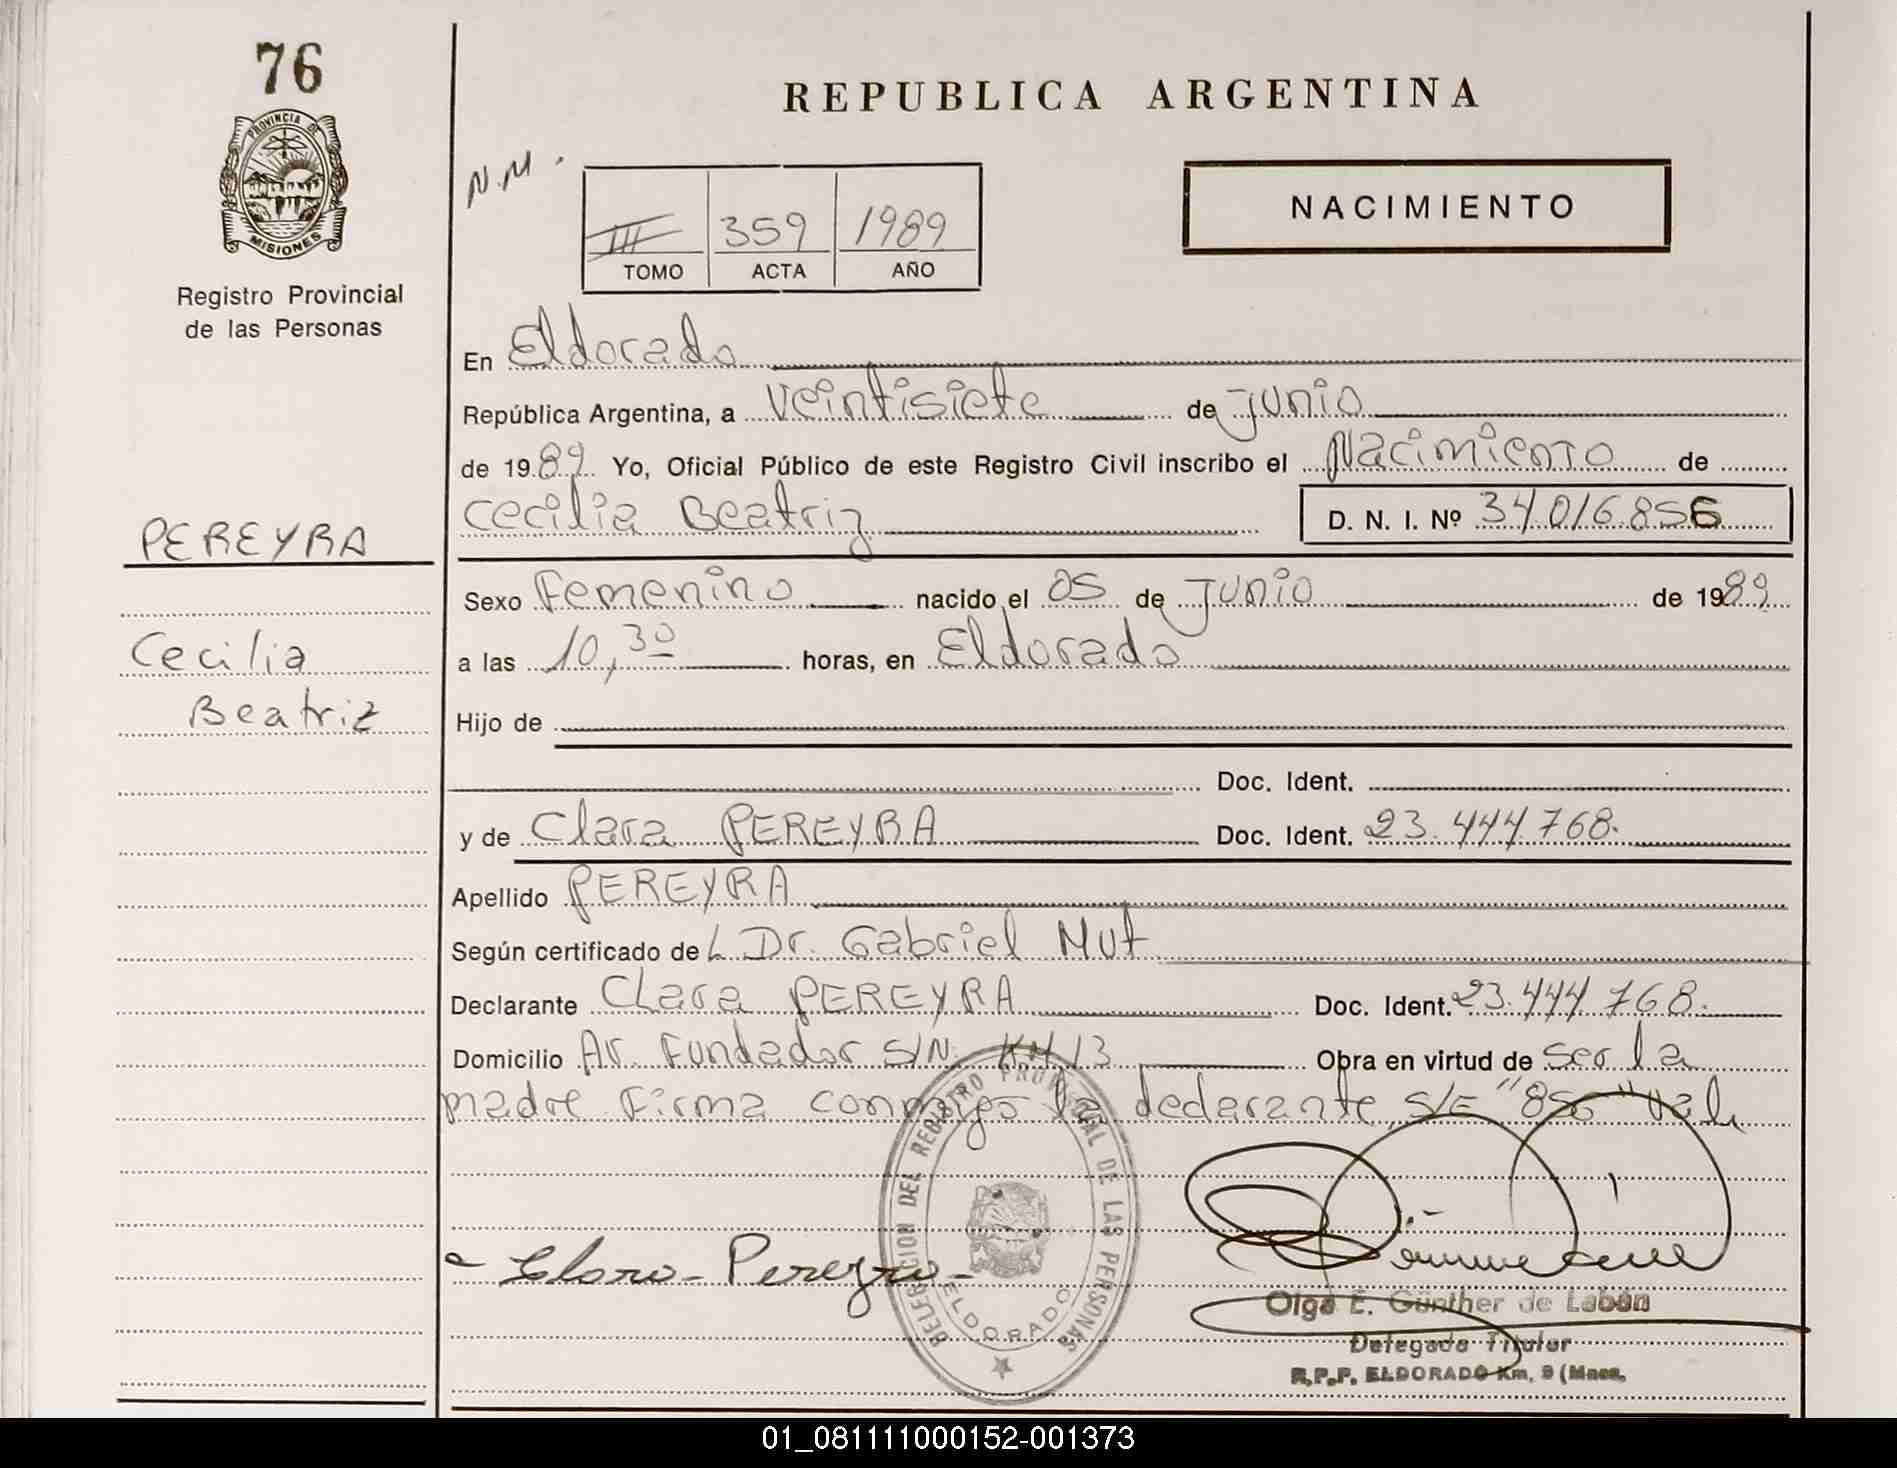 76
PROVINCIA DE
MISIONES
Registro Provincial
de las Personas
REPUBLICA ARGENTINA
N.M.
III 359 1989
TOMO ACTA AÑO
NACIMIENTO
En Eldorado
República Argentina, a veintisiete de junio
de 1989 Yo, Oficial Público de este Registro Civil inscribo el Nacimiento de
Cecilia Beatriz D. N. I. Nº 34016856
PEREYRA
Sexo Femenino nacido el 05 de junio de 1989
Cecilia
a las 10,30 horas, en Eldorado
Beatriz
Hijo de
Doc. Ident.
y de Clara PEREYRA Doc. Ident. 23.444.768.
Apellido PEREYRA
Según certificado de L Dr. Gabriel Mut
Declarante Clara PEREYRA Doc. Ident. 23.444.768.
Domicilio Av. Fundador S/N. KM 13 Obra en virtud de ser la
madre Firma conmigo la declarante S/E "856" Vale
DELEGACION DEL REGISTRO PROVINCIAL DE LAS PERSONAS
ELDORADO
Clara Pereyra
Olga E. Günther de Labán
Delegada Titular
R.P.P. ELDORADO Km. 9 (Mnes.
01_081111000152-001373